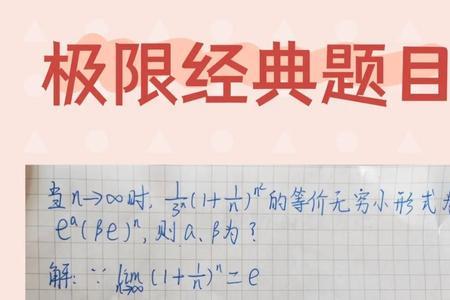 极限经典题目
当n→∞时, 1/3ⁿ(1+1/n)^n² 的等价无穷小形式为
e^a(βe)ⁿ, 则a、β为?
解: ∵ lim n→∞ (1+1/n)ⁿ=e